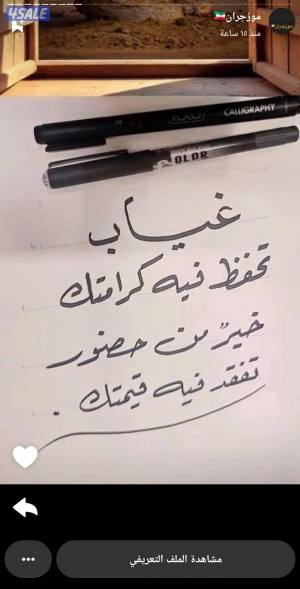 4SALE
موزجران🇰🇼
منذ ١٥ ساعة
CALLIGRAPHY
COLOR
غياب
تحفظ فيه كرامتك
خيرٌ من حضور
تفقد فيه قيمتك .
مشاهدة الملف التعريفي